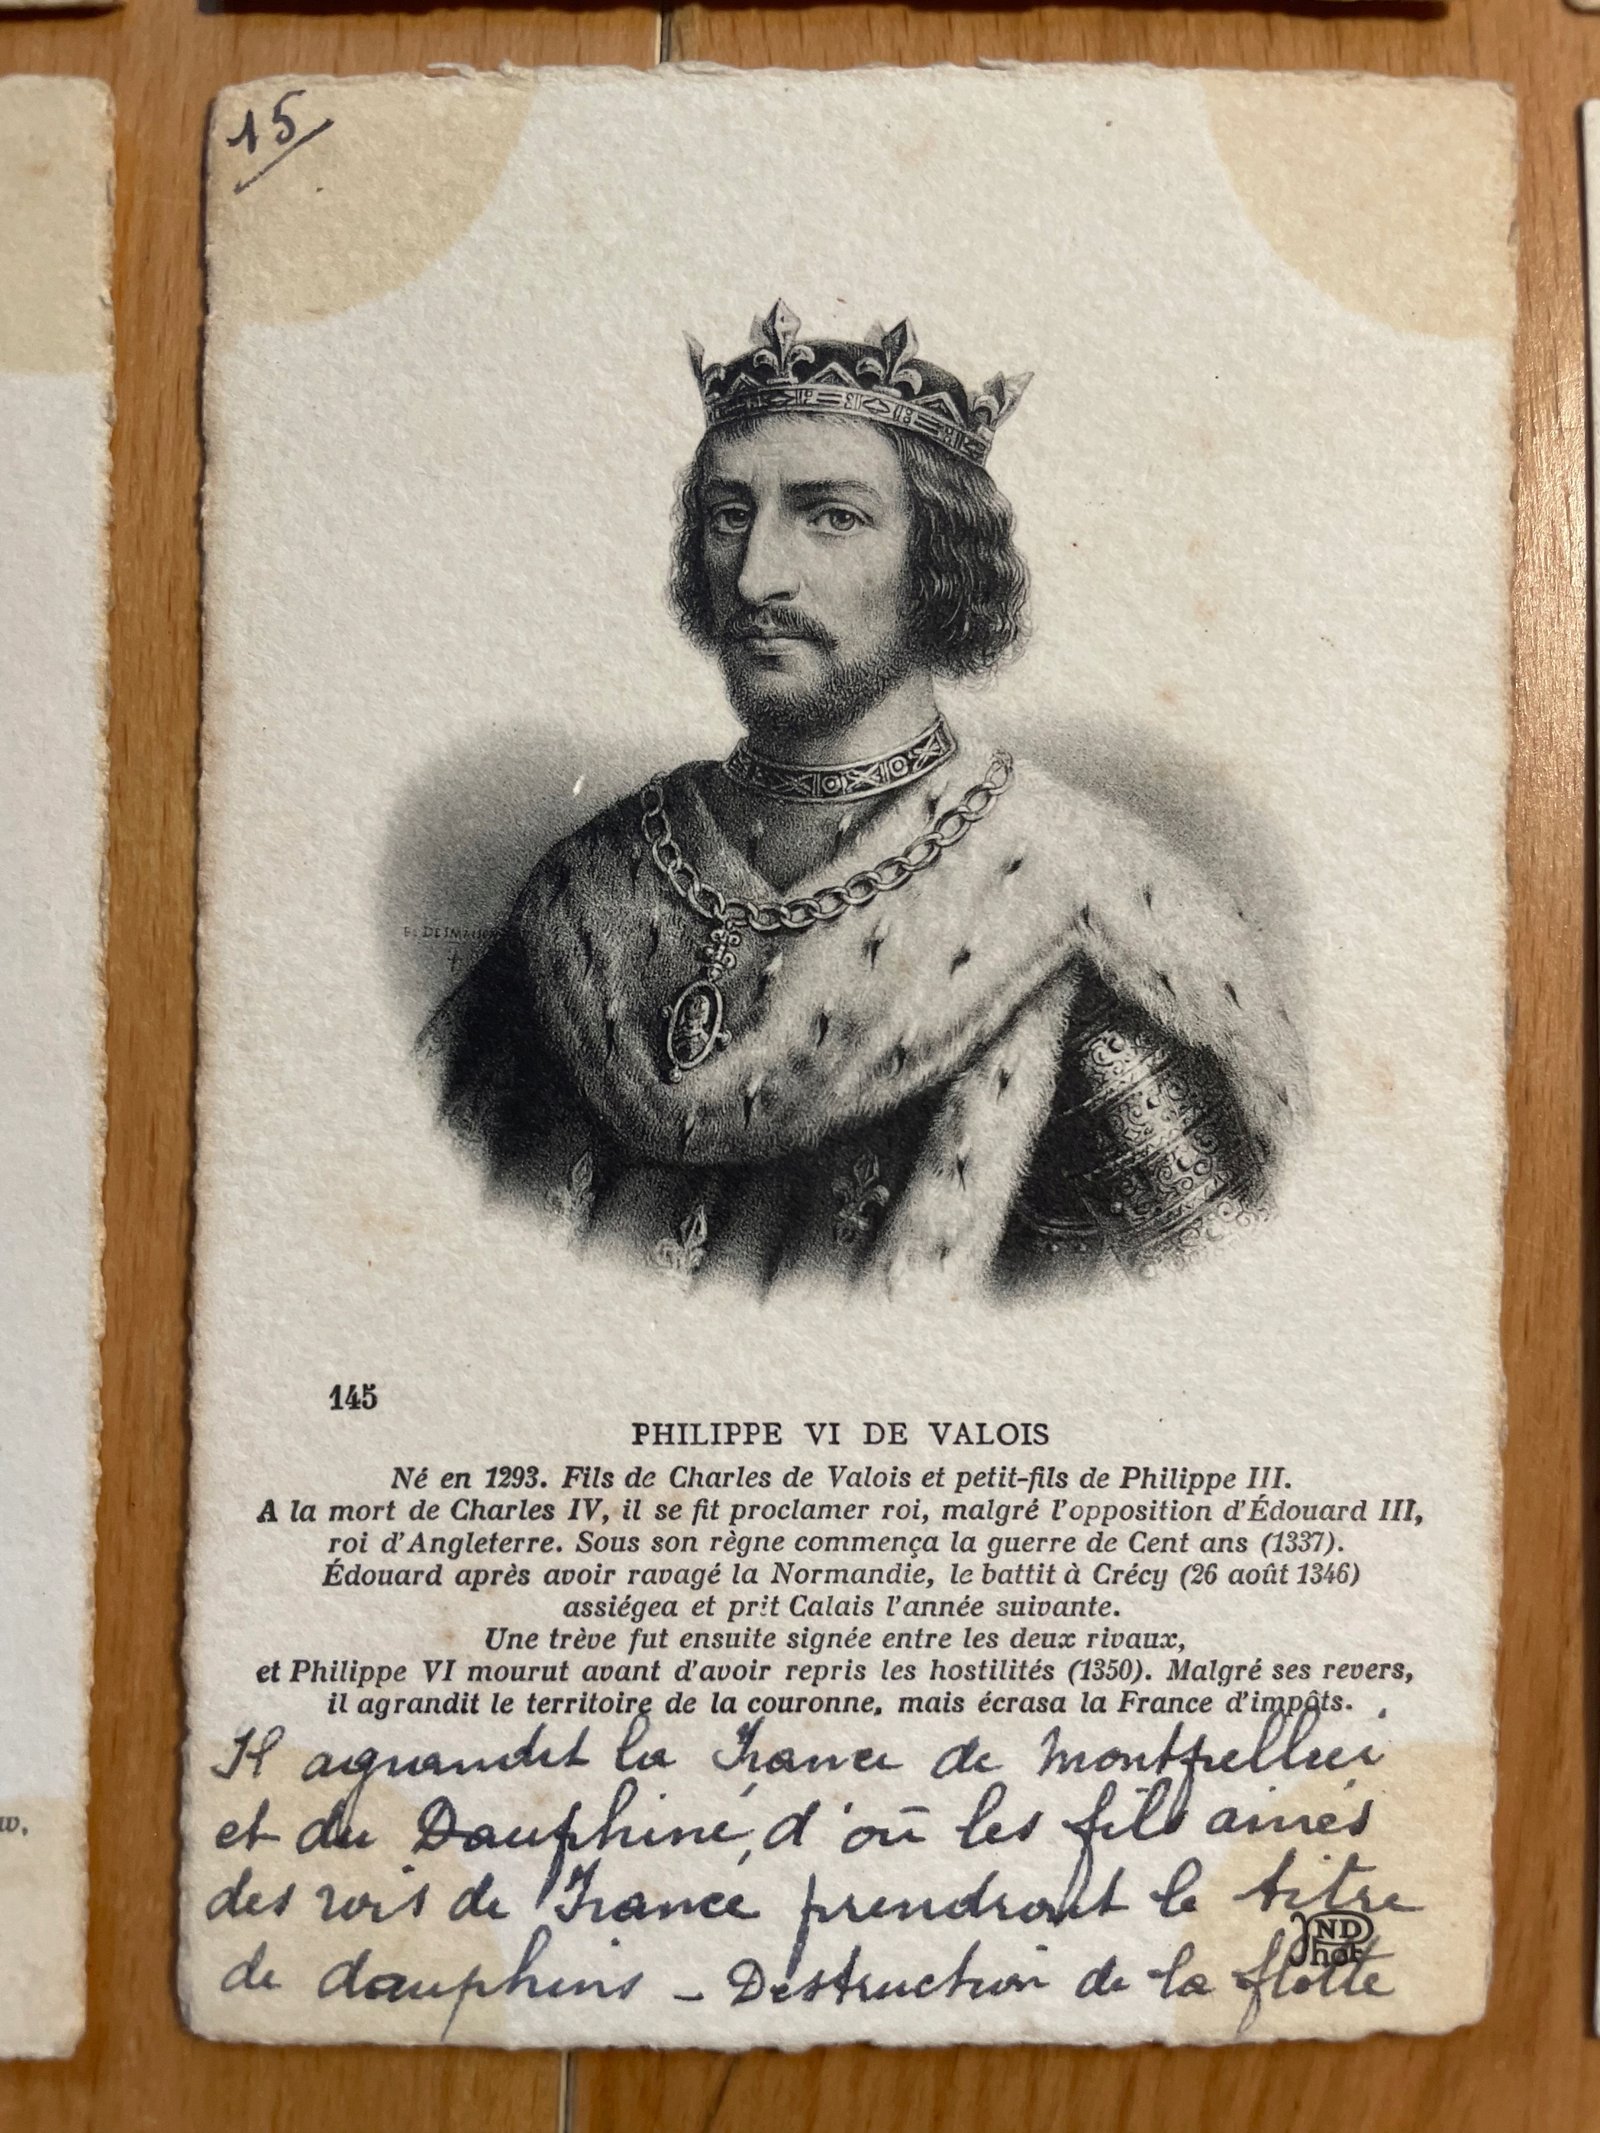 15
E. DESMAISONS
145
PHILIPPE VI DE VALOIS
Né en 1293. Fils de Charles de Valois et petit-fils de Philippe III.
A la mort de Charles IV, il se fit proclamer roi, malgré l'opposition d'Édouard III,
roi d'Angleterre. Sous son règne commença la guerre de Cent ans (1337).
Édouard après avoir ravagé la Normandie, le battit à Crécy (26 août 1346)
assiégea et prit Calais l'année suivante.
Une trève fut ensuite signée entre les deux rivaux,
et Philippe VI mourut avant d'avoir repris les hostilités (1350). Malgré ses revers,
il agrandit le territoire de la couronne, mais écrasa la France d'impôts.
Il agrandit la France de Montpellier
et du Dauphiné, d'où les fils ainés
des rois de France prendront le titre
de dauphins - Destruction de la flotte
ND
Phot
w.